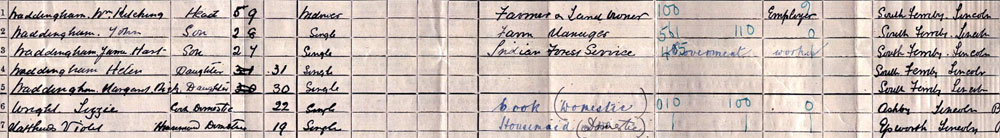 1 Waddingham. Wm Hutching Head 59 Widower Farmer & Land Owner 100 Employer 9 South Ferriby. Lincoln
2 Waddingham. John Son 29 Single Farm Manager 110 0 South Ferriby. Lincoln
3 Waddingham James Hart Son 27 Single Indian Forest Service Government worker South Ferriby. Lincoln
4 Waddingham Helen Daughter 31 31 Single South Ferriby Lincoln
5 Waddingham. Margaret Daughter 30 30 Single South Ferriby Lincoln
6 Wright Lizzie Cook Domestic 22 Single Cook (Domestic) 010 100 0 Ashby Lincoln
7 Matthews Violet Housemaid Domestic 19 Single Housemaid (Domestic) 0 Epworth Lincoln